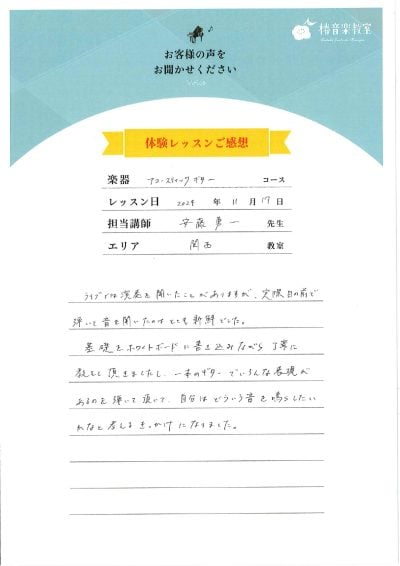 お客様の声を
お聞かせください
椿音楽教室
体験レッスンご感想
楽器 アコースティックギター コース
レッスン日 2024 年 11 月 17 日
担当講師 安藤 勇一 先生
エリア 関西 教室
ライブでは演奏を聞いたことがありますが、実際目の前で
弾いて音を聞いたのはとても新鮮でした。
基礎をホワイトボードに書き込みながら丁寧に
教えて頂きましたし、一本のギターでいろんな表現が
あるのを弾いて頂いて、自分はどういう音を鳴らしたい
かなと考えるきっかけになりました。